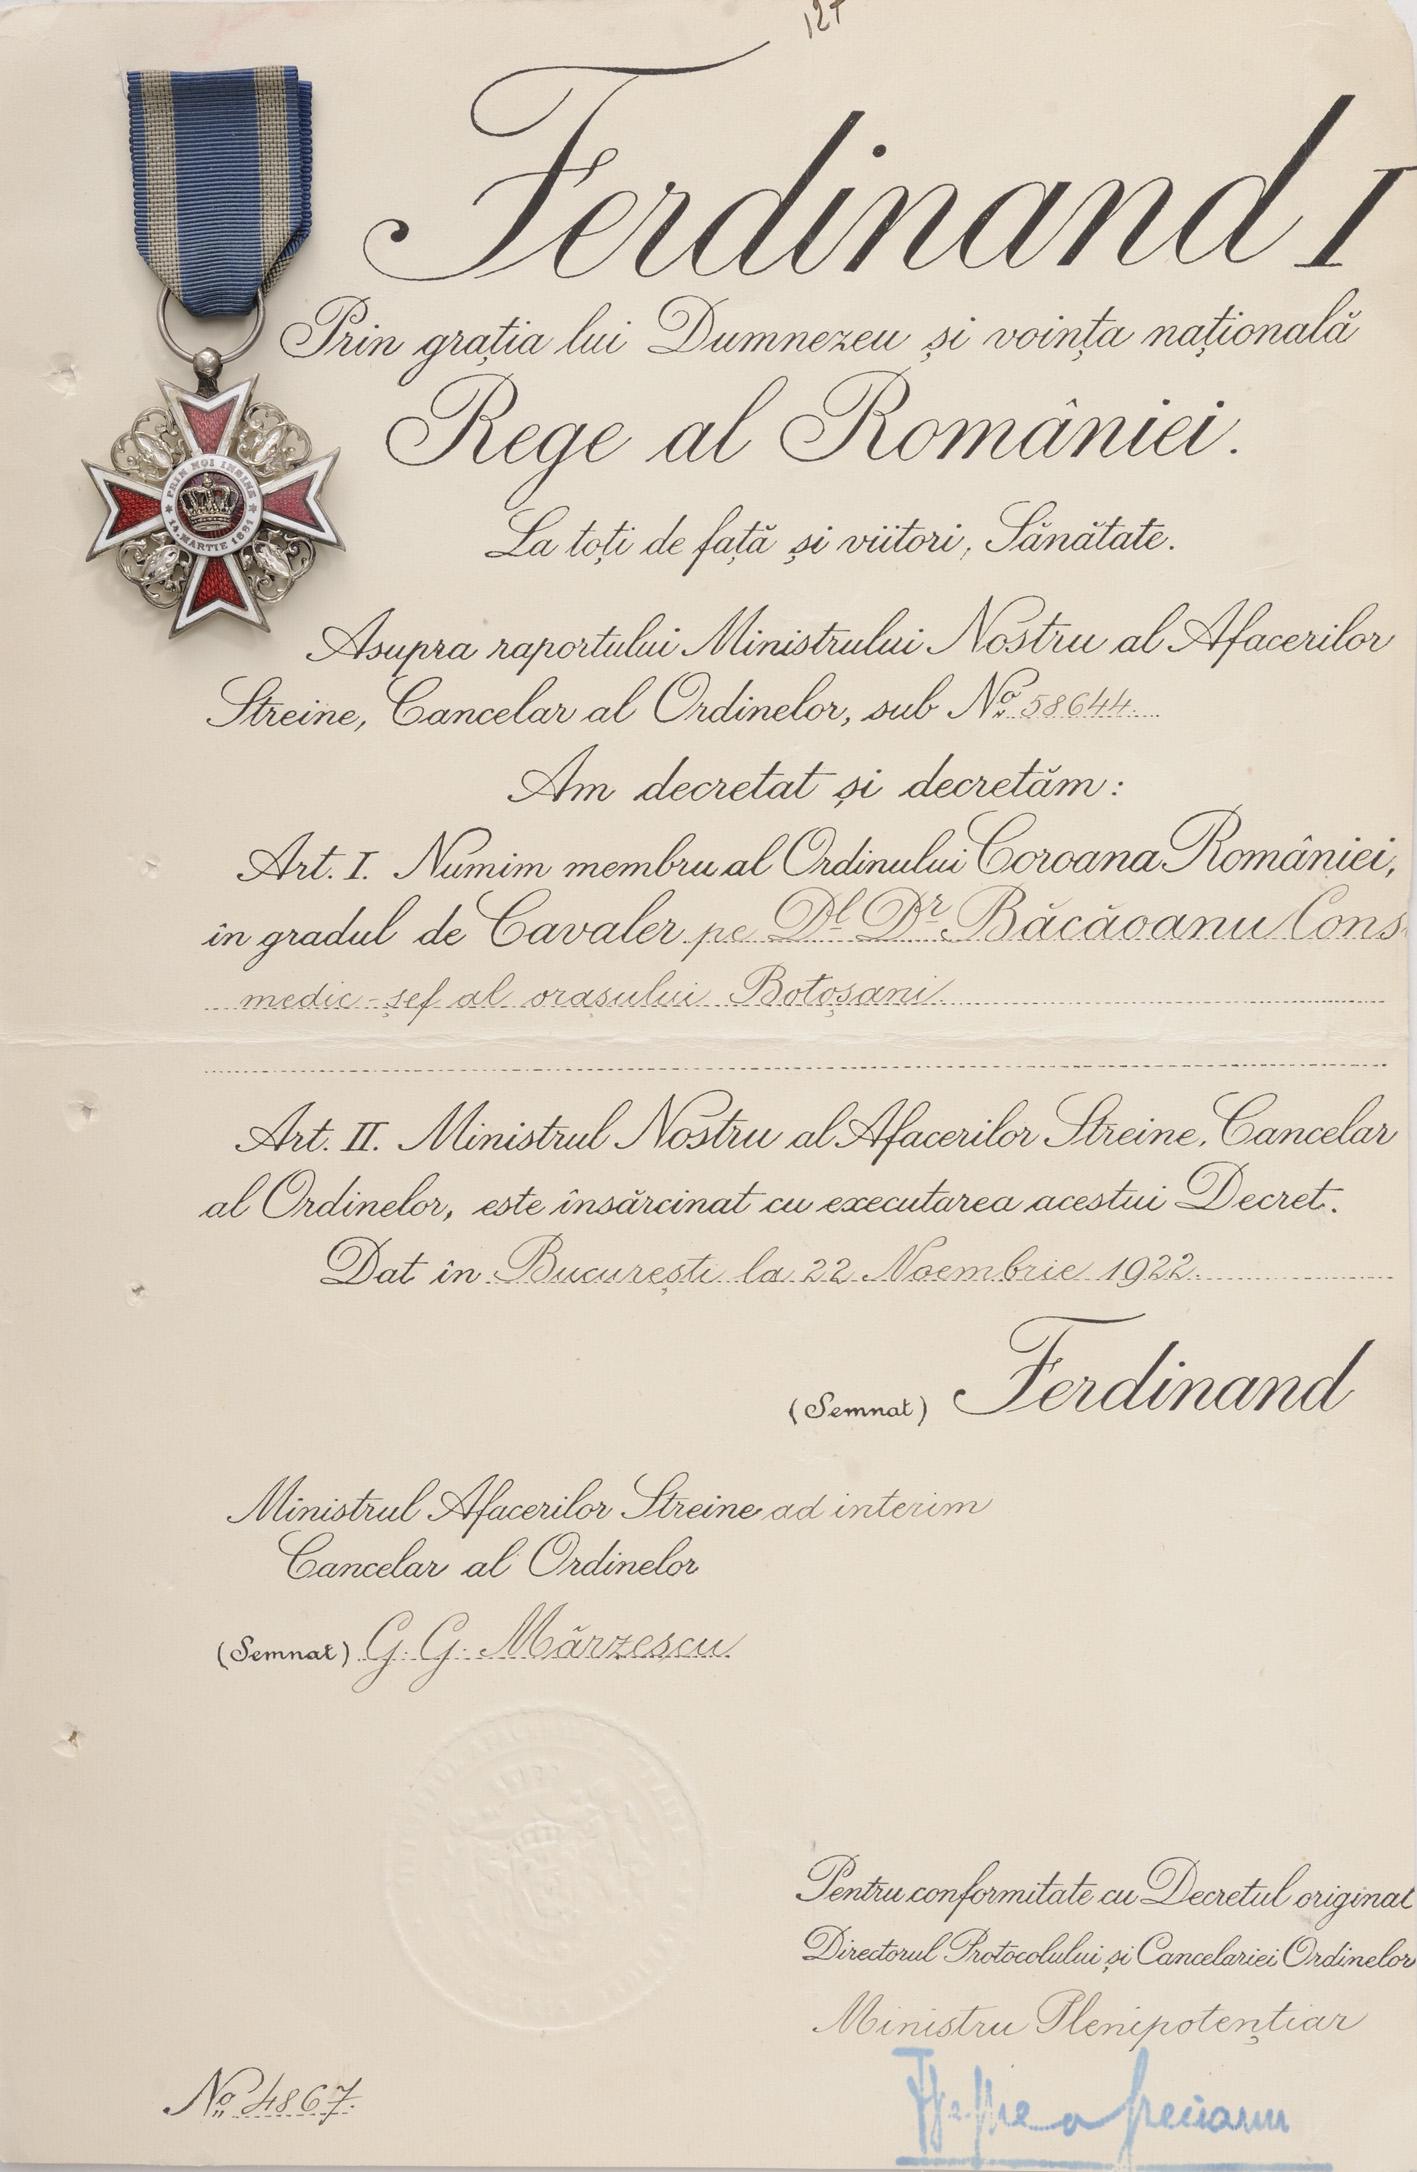 127
Ferdinand I
Prin grația lui Dumnezeu și voința națională
Rege al României.
La toți de față și viitori, Sănătate.
PRIN NOI INSINE
14 MARTIE 1881
Asupra raportului Ministrului Nostru al Afacerilor
Streine, Cancelar al Ordinelor, sub No. 58644
Am decretat și decretăm:
Art. I. Numim membru al Ordinului Coroana României,
în gradul de Cavaler pe Dl Dr Băcăoanu Cons
medic-șef al orașului Botoșani
Art. II. Ministrul Nostru al Afacerilor Streine, Cancelar
al Ordinelor, este însărcinat cu executarea acestui Decret.
Dat în București la 22 Noembrie 1922.
(Semnat) Ferdinand
Ministrul Afacerilor Streine ad interim
Cancelar al Ordinelor
(Semnat) G. G. Mârzescu
Pentru conformitate cu Decretul original
Directorul Protocolului și Cancelariei Ordinelor
Ministru Plenipotențiar
No. 4867